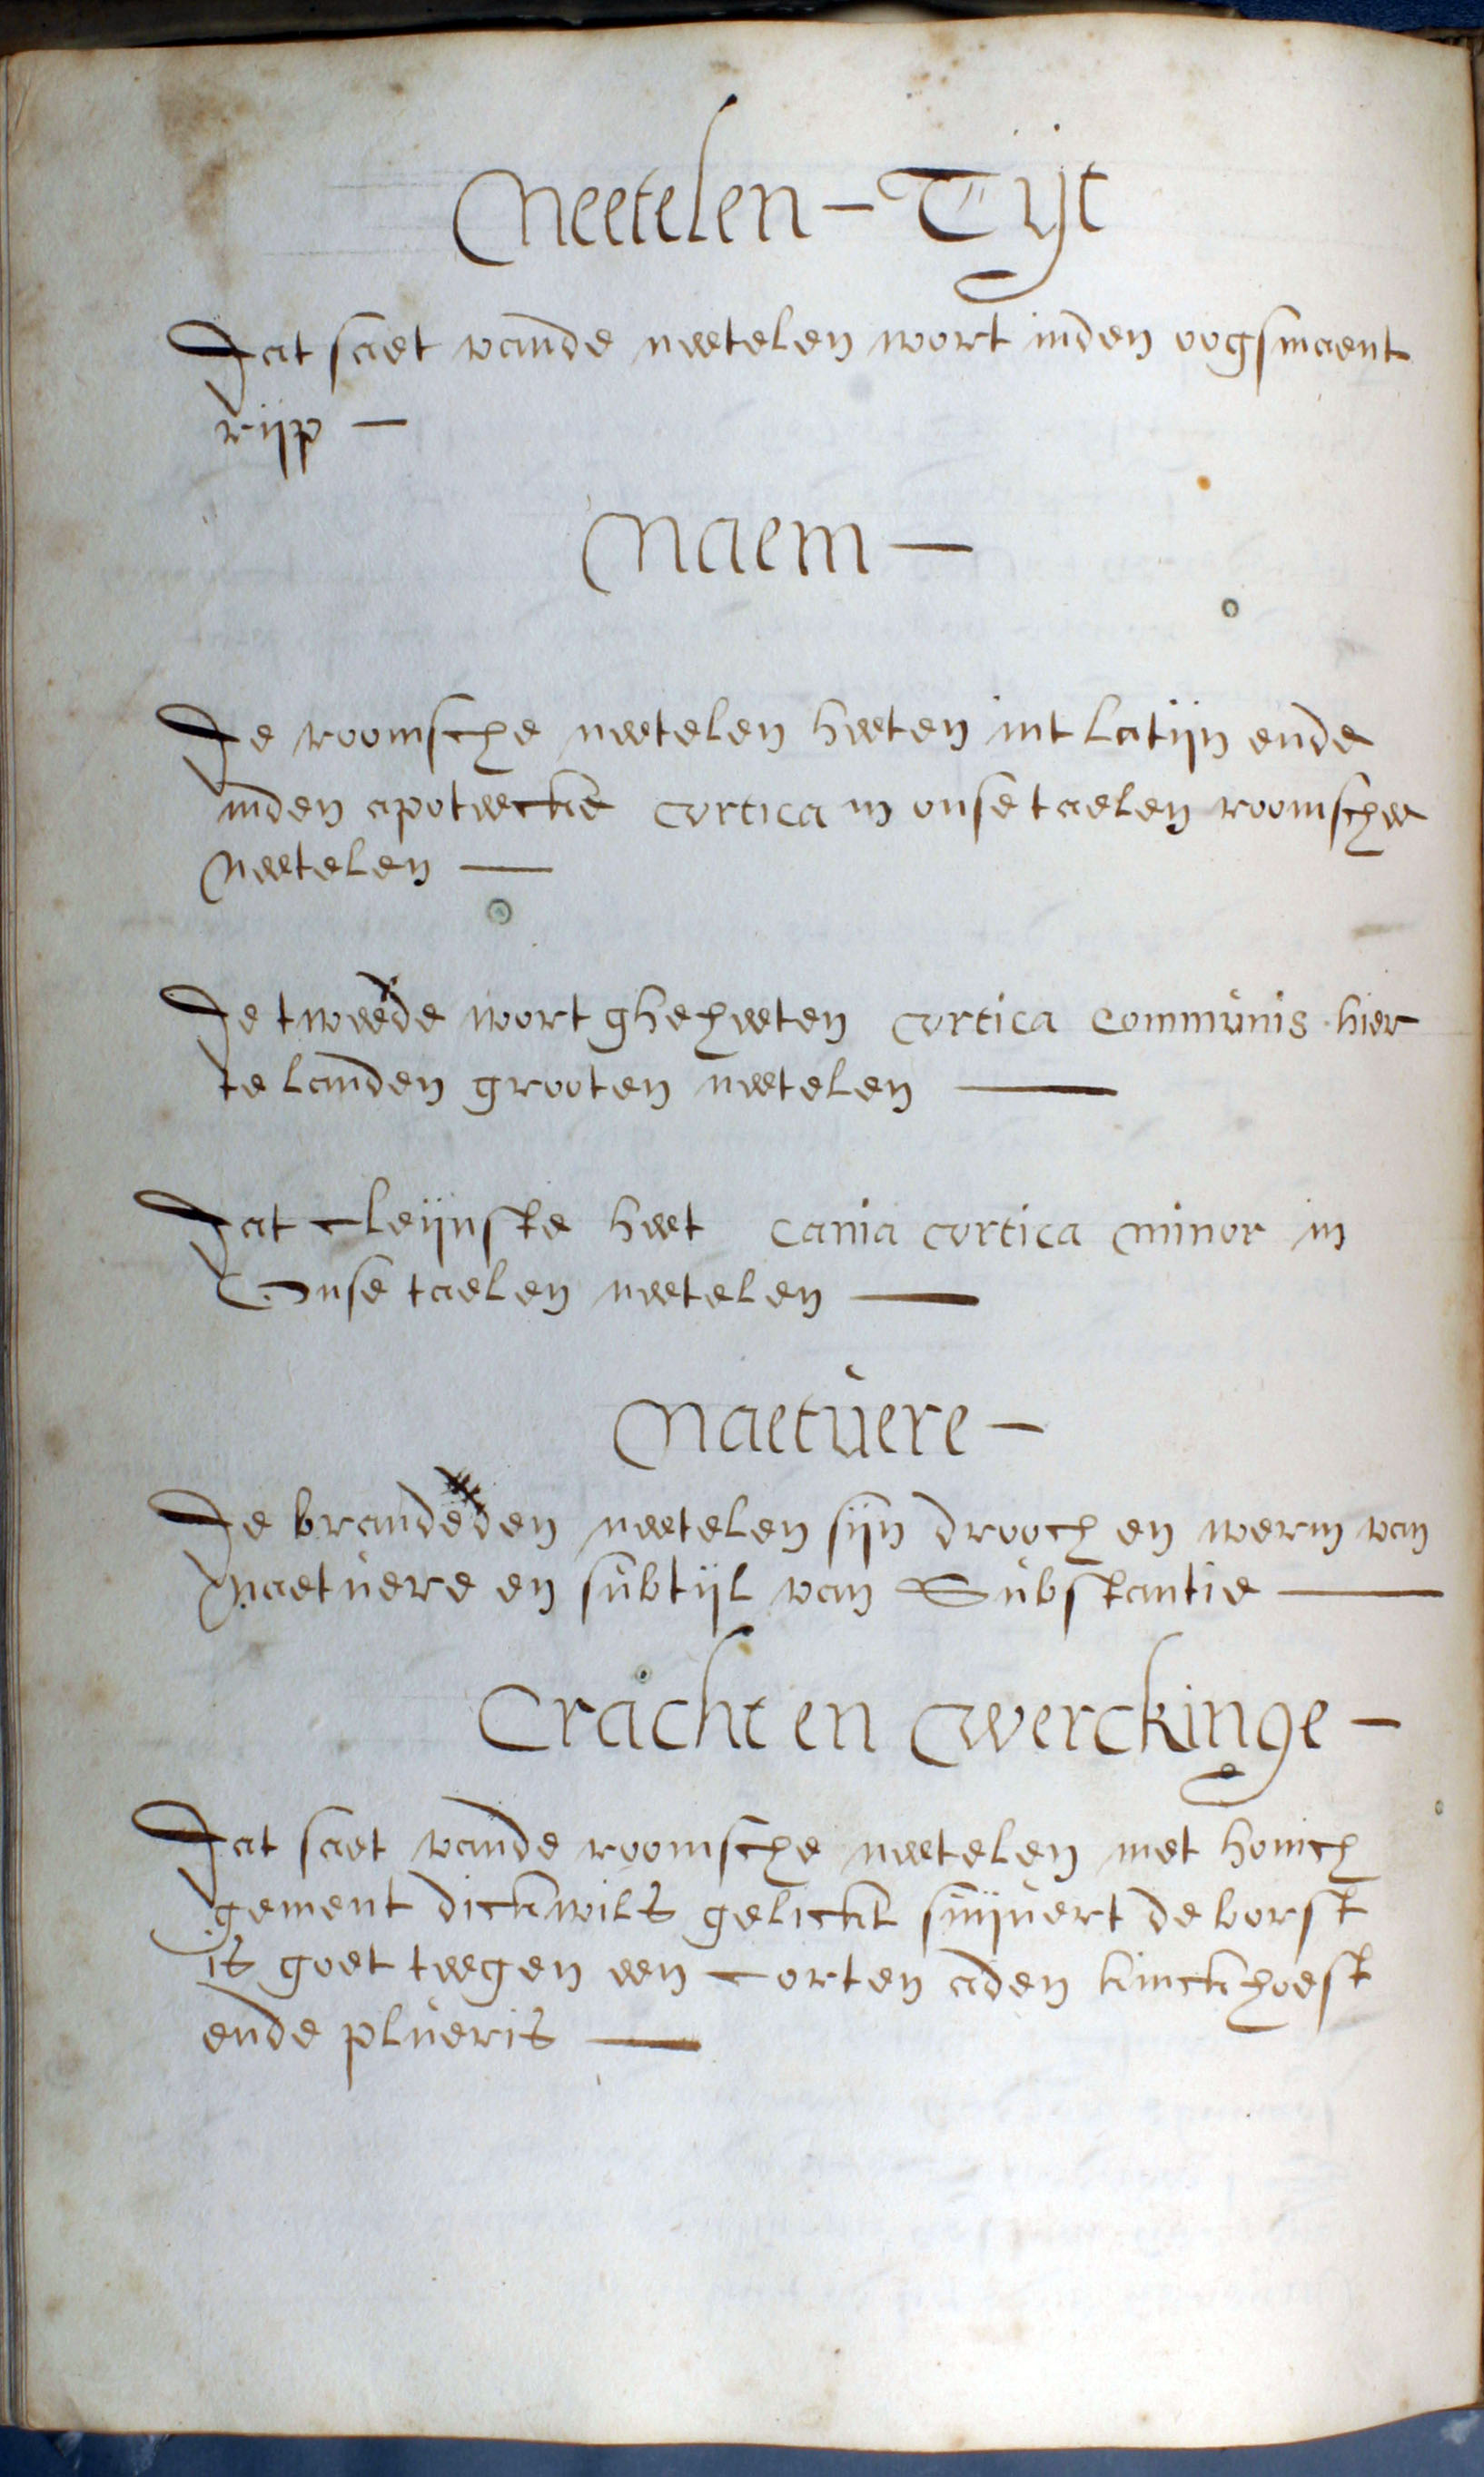 Neetelen – Tijt
Dat saet vande neetelen wort inden oogsmaent
rijp —
Naem —
De roomsche neetelen heeten int latijn ende
inden apoteecke vrtica in onse taelen roomschee
Neetelen —
De tweede wort gheheeten vrtica Communis hier
te landen grooten neetelen —
Dat cleijnste heet Cania vrtica Minor in
Onse taelen neetelen —
Naetuere —
De brandeden neetelen sijn drooch en werm van
Naetuere en subtijl van Substantie —
Cracht en Werckinge —
Dat saet vande roomsche neetelen met honich
gement dickwils gelickt suijvert de borst
is goet teegen een corten adem kinckhoest
ende plueris —